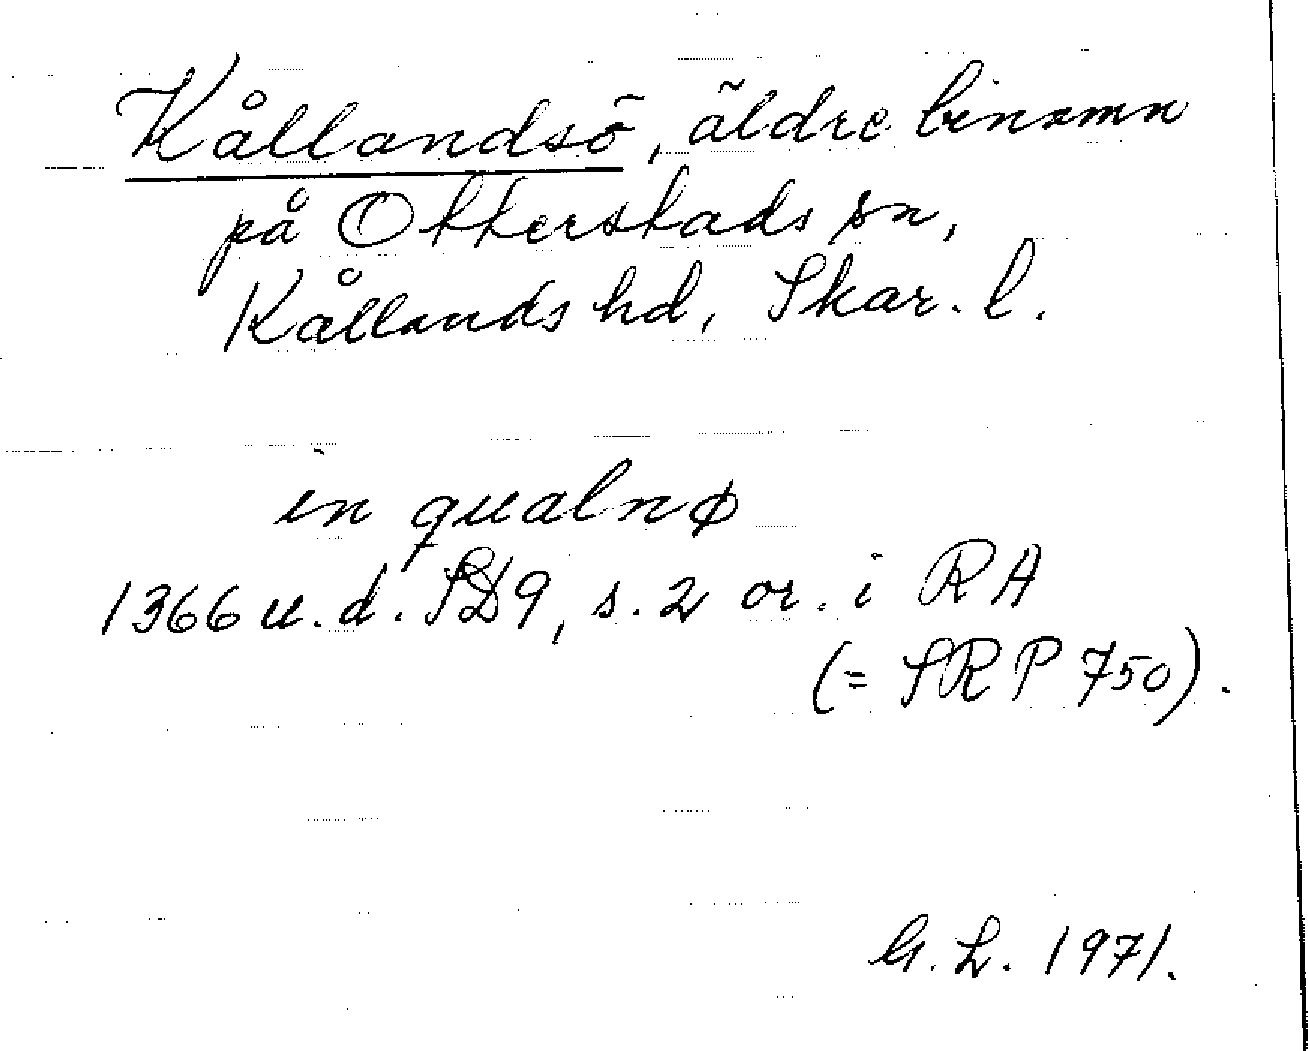 Kållandsö, äldre binamn
på Otterstads sn,
Kållands hd, Skar. l.
in qualnø
1366 u.d. SD9, s. 2 or. i RA
(= SRP 750).
G. L. 1971.